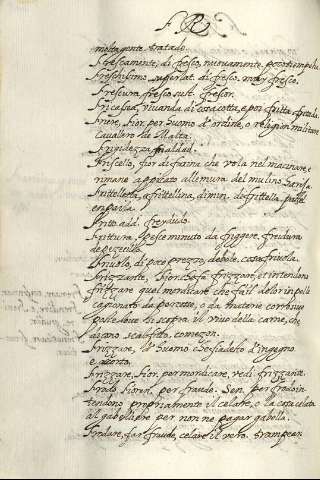 F R
molta gente tratado.
Frescamente, di fresco, nuovamente,
Freschissimo superlat. di fresco. muy fresco.
Frescura fresco sust. frescor.
Fricassea, vivanda di cosa cotta, e poi fritta, fritada.
Friere, Fior. per huomo d'ordine, o religion militare
Cavallero de Malta.
Frigidezza frialdad.
Friscello, fior di farina che vola nel macinare, e
rimane appicato alle mura del mulino
Frittelletta, e frittellina, dimin. di frittella
Fritto add. freydido.
Frittura, Pesce minuto da friggere, freidura
de pezecillos.
Frivolo, di poco prezzo, debole, cosa frivola.
Frizzante, Fior. da frizzare, et intendono
frizzare quel mordicare che fa il dolor in pelle
caxionato da percosse, o da materia corrosiva
posta dove si scopra il vivo della carne, che
dicono scalfitto, comezon.
Frizzare, d'huomo
e
Frizzare, Fior. per mordicare, vedi frizzante.
Frodo Fiorent. per fraude. Sen. per frodo in
tendono propriamente il celare, o la cosa celata
al gabelliere per non ne pagar gabella.
Frodare, far fraude, celare il vero. trampear